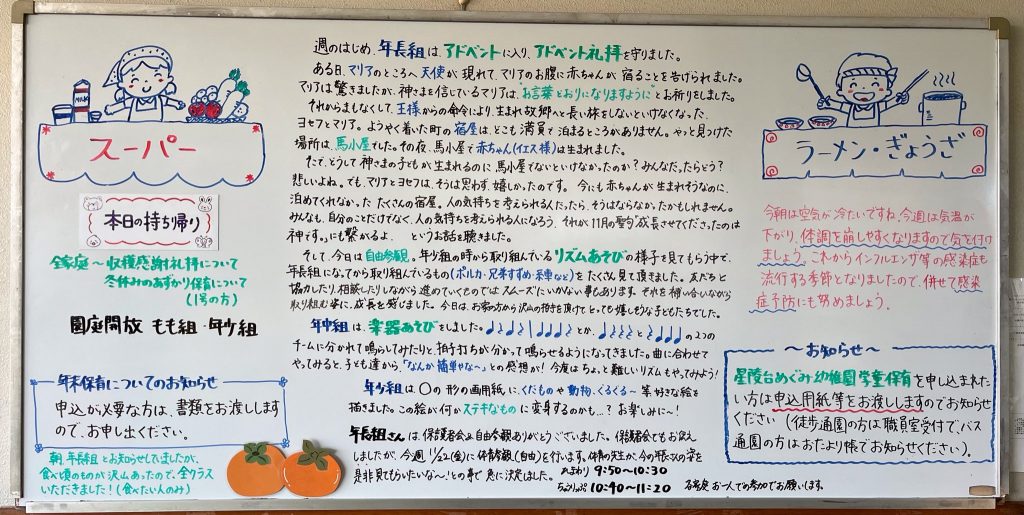 MILK
スーパー
本日の持ち帰り
全家庭～収穫感謝礼拝について
冬休みのあずかり保育について
(1号の方)
園庭開放 もも組・年少組
年末保育についてのお知らせ
申込が必要な方は、書類をお渡しします
ので、お申し出ください。
朝、年長組とお知らせしていましたが、
食べ頃のものが沢山あったので、全クラス
いただきました!(食べたい人のみ)
週のはじめ、年長組は、アドベントに入り、アドベント礼拝を守りました。
ある日、マリアのところへ天使が現れて、マリアのお腹に赤ちゃんが宿ることを告げられました。
マリアは驚きましたが、神さまを信じているマリアは、"お言葉どおりになりますように"とお祈りをしました。
それからまもなくして、王様からの命令により、生まれ故郷へ長い旅をしないといけなくなった、
ヨセフとマリア。ようやく着いた町の宿屋は、どこも満員で泊まるところがありません。やっと見つけた
場所は、馬小屋でした。その夜、馬小屋で赤ちゃん(イエス様)は生まれました。
たで、どうして神さまの子どもが生まれるのに馬小屋でないといけなかったのか?みんなだったらどう?
悲しいよね。でも、マリアとヨセフは、そうは思わず、嬉しかったのです。今にも赤ちゃんが生まれそうなのに、
泊めてくれなかったたくさんの宿屋。人の気持ちを考えられる人だったら、そうはならなかったかもしれません。
みんなも、自分のことだけでなく、人の気持ちを考えられる人になろう。それが11月の聖句「成長させてくださったのは
神です。」にも繋がるよ、というお話を聴きました。
そして、今日は自由参観。年少組の時から取り組んでいるリズムあそびの様子を見てもらう中で、
年長組になってから取り組んでいるもの(ポルカ・兄弟すずめ・糸車など)をたくさん見て頂きました。友だちと
協力したり、相談したりしながら進めていくものではスムーズにいかない事もあります。それを補い合いながら
取り組む姿に、成長を感じました。今日は、お家の方から沢山の拍手を頂けてとっても嬉しそうな子どもたちでした。
年中組は、楽器あそびをしました。とか、との2つの
チームに分かれて鳴らしてみたりと、拍子打ちが分かって鳴らせるようになってきました。曲に合わせて
やってみると、子ども達から、「なんか簡単やな～」との感想が!今度はちょっと難しいリズムもやってみよう!
年少組は、〇の形の画用紙に、くだものや動物、くるくる～等、好きな絵を
描きました。この絵が何かステキなものに変身するのかも…?お楽しみに～!
年長組さんは、保護者会&自由参観ありがとうございました。保護者会でもお伝え
しましたが、今週11/22(金)に体育参観(自由)を行います。体育の先生が、今の年長さんの姿を
是非見てもらいたいな～!との事で急に決定しました。
ひまわり 9:50～10:30
ちゅうりっぷ 10:40～11:20 各家庭お一人での参加でお願いします。
ラーメン・ぎょうざ
今朝は空気が冷たいですね。今週は気温が
下がり、体調を崩しやすくなりますので気を付け
ましょう。これからインフルエンザ等の感染症も
流行する季節となりましたので、併せて感染
症予防にも努めましょう。
～お知らせ～
星陵台めぐみ幼稚園学童保育を申し込まれた
い方は申込用紙等をお渡ししますのでお知らせ
ください(徒歩通園の方は職員室受付で、バス
通園の方はおたより帳でお知らせください)。